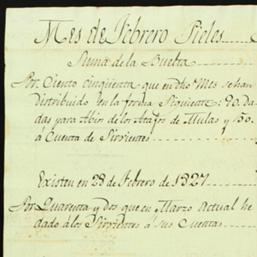 Mes de Febrero Pieles
Suma de la Buelta
Por Ciento cinquenta que en dho Mes se han
distribuido en la forma siguiente: 90. da
das para Abios de los Atajos de Mulas y 60.
á Cuenta de Sirvientes
Existen en 28 de Febrero de 1827
Por Quarenta y dos que en Marzo actual he
dado á los Sirvientes á sus Cuentas